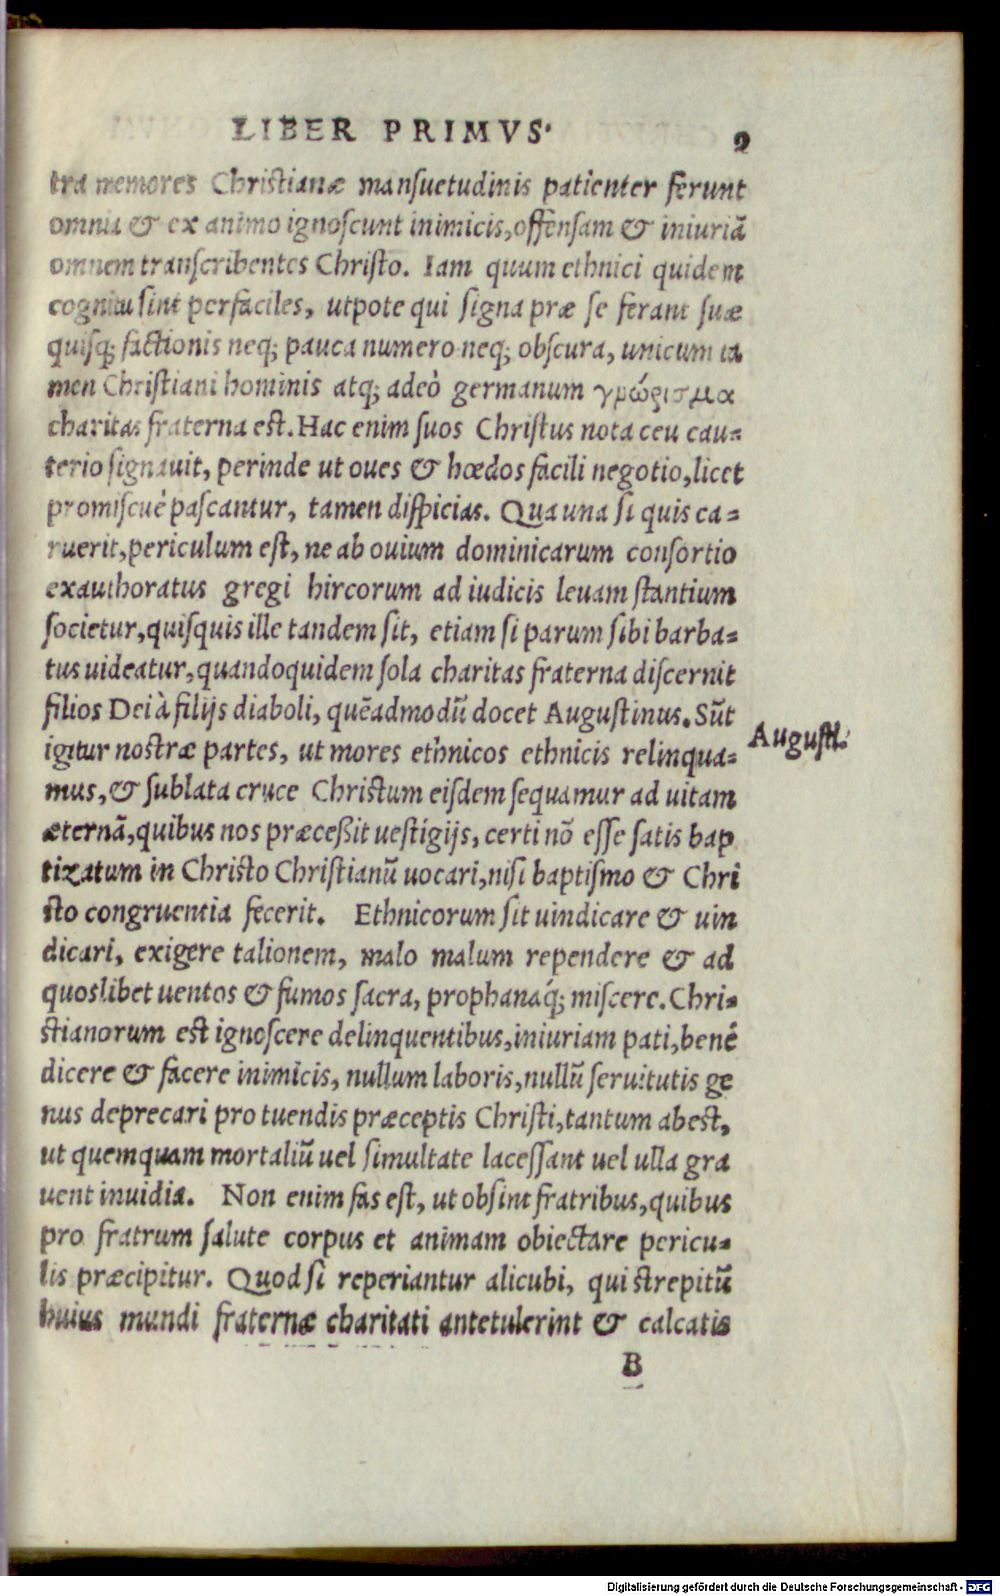 LIBER PRIMVS.
9
tra memores Christianæ mansuetudinis patienter ferunt
omnia & ex animo ignoscunt inimicis, offensam & iniuriã
omnem transcribentes Christo. Iam quum ethnici quidem
cognitu sint perfaciles, utpote qui signa præ se ferant suæ
quisq; factionis neq; pauca numero neq; obscura, unicum ta
men Christiani hominis atq; adeò germanum γνώρισμα
charitas fraterna est. Hac enim suos Christus nota ceu cau-
terio signauit, perinde ut oues & hœdos facili negotio, licet
promiscuè pascantur, tamen dispicias. Qua una si quis ca-
ruerit, periculum est, ne ab ouium dominicarum consortio
exauthoratus gregi hircorum ad iudicis leuam stantium
societur, quisquis ille tandem sit, etiam si parum sibi barba-
tus uideatur, quandoquidem sola charitas fraterna discernit
filios Dei à filijs diaboli, quẽadmodũ docet Augustinus. Sũt
igitur nostræ partes, ut mores ethnicos ethnicis relinqua-
mus, & sublata cruce Christum eisdem sequamur ad uitam
æternã, quibus nos præceßit uestigijs, certi nõ esse satis bap
tizatum in Christo Christianũ uocari, nisi baptismo & Chri
sto congruentia fecerit. Ethnicorum sit uindicare & uin
dicari, exigere talionem, malo malum rependere & ad
quoslibet uentos & fumos sacra, prophanaq́; miscere. Chri-
stianorum est ignoscere delinquentibus, iniuriam pati, bene
dicere & facere inimicis, nullum laboris, nullũ seruitutis ge
nus deprecari pro tuendis præceptis Christi, tantum abest,
ut quemquam mortaliũ uel simultate lacessant uel ulla gra
uent inuidia. Non enim fas est, ut obsint fratribus, quibus
pro fratrum salute corpus et animam obiectare pericu-
lis præcipitur. Quod si reperiantur alicubi, qui strepitũ
huius mundi fraternæ charitati antetulerint & calcatis
B
Augusti.
Digitalisierung gefördert durch die Deutsche Forschungsgemeinschaft - DFG